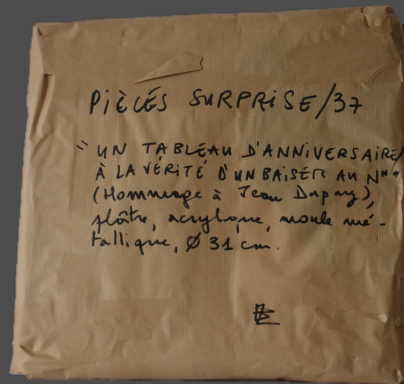 PIÈCES SURPRISE/37
"UN TABLEAU D'ANNIVERSAIRE/
À LA VÉRITÉ D'UN BAISER AU N""
(Hommage à Jean Dupuy),
plâtre, acrylique, moule mé-
tallique, Ø 31 cm.